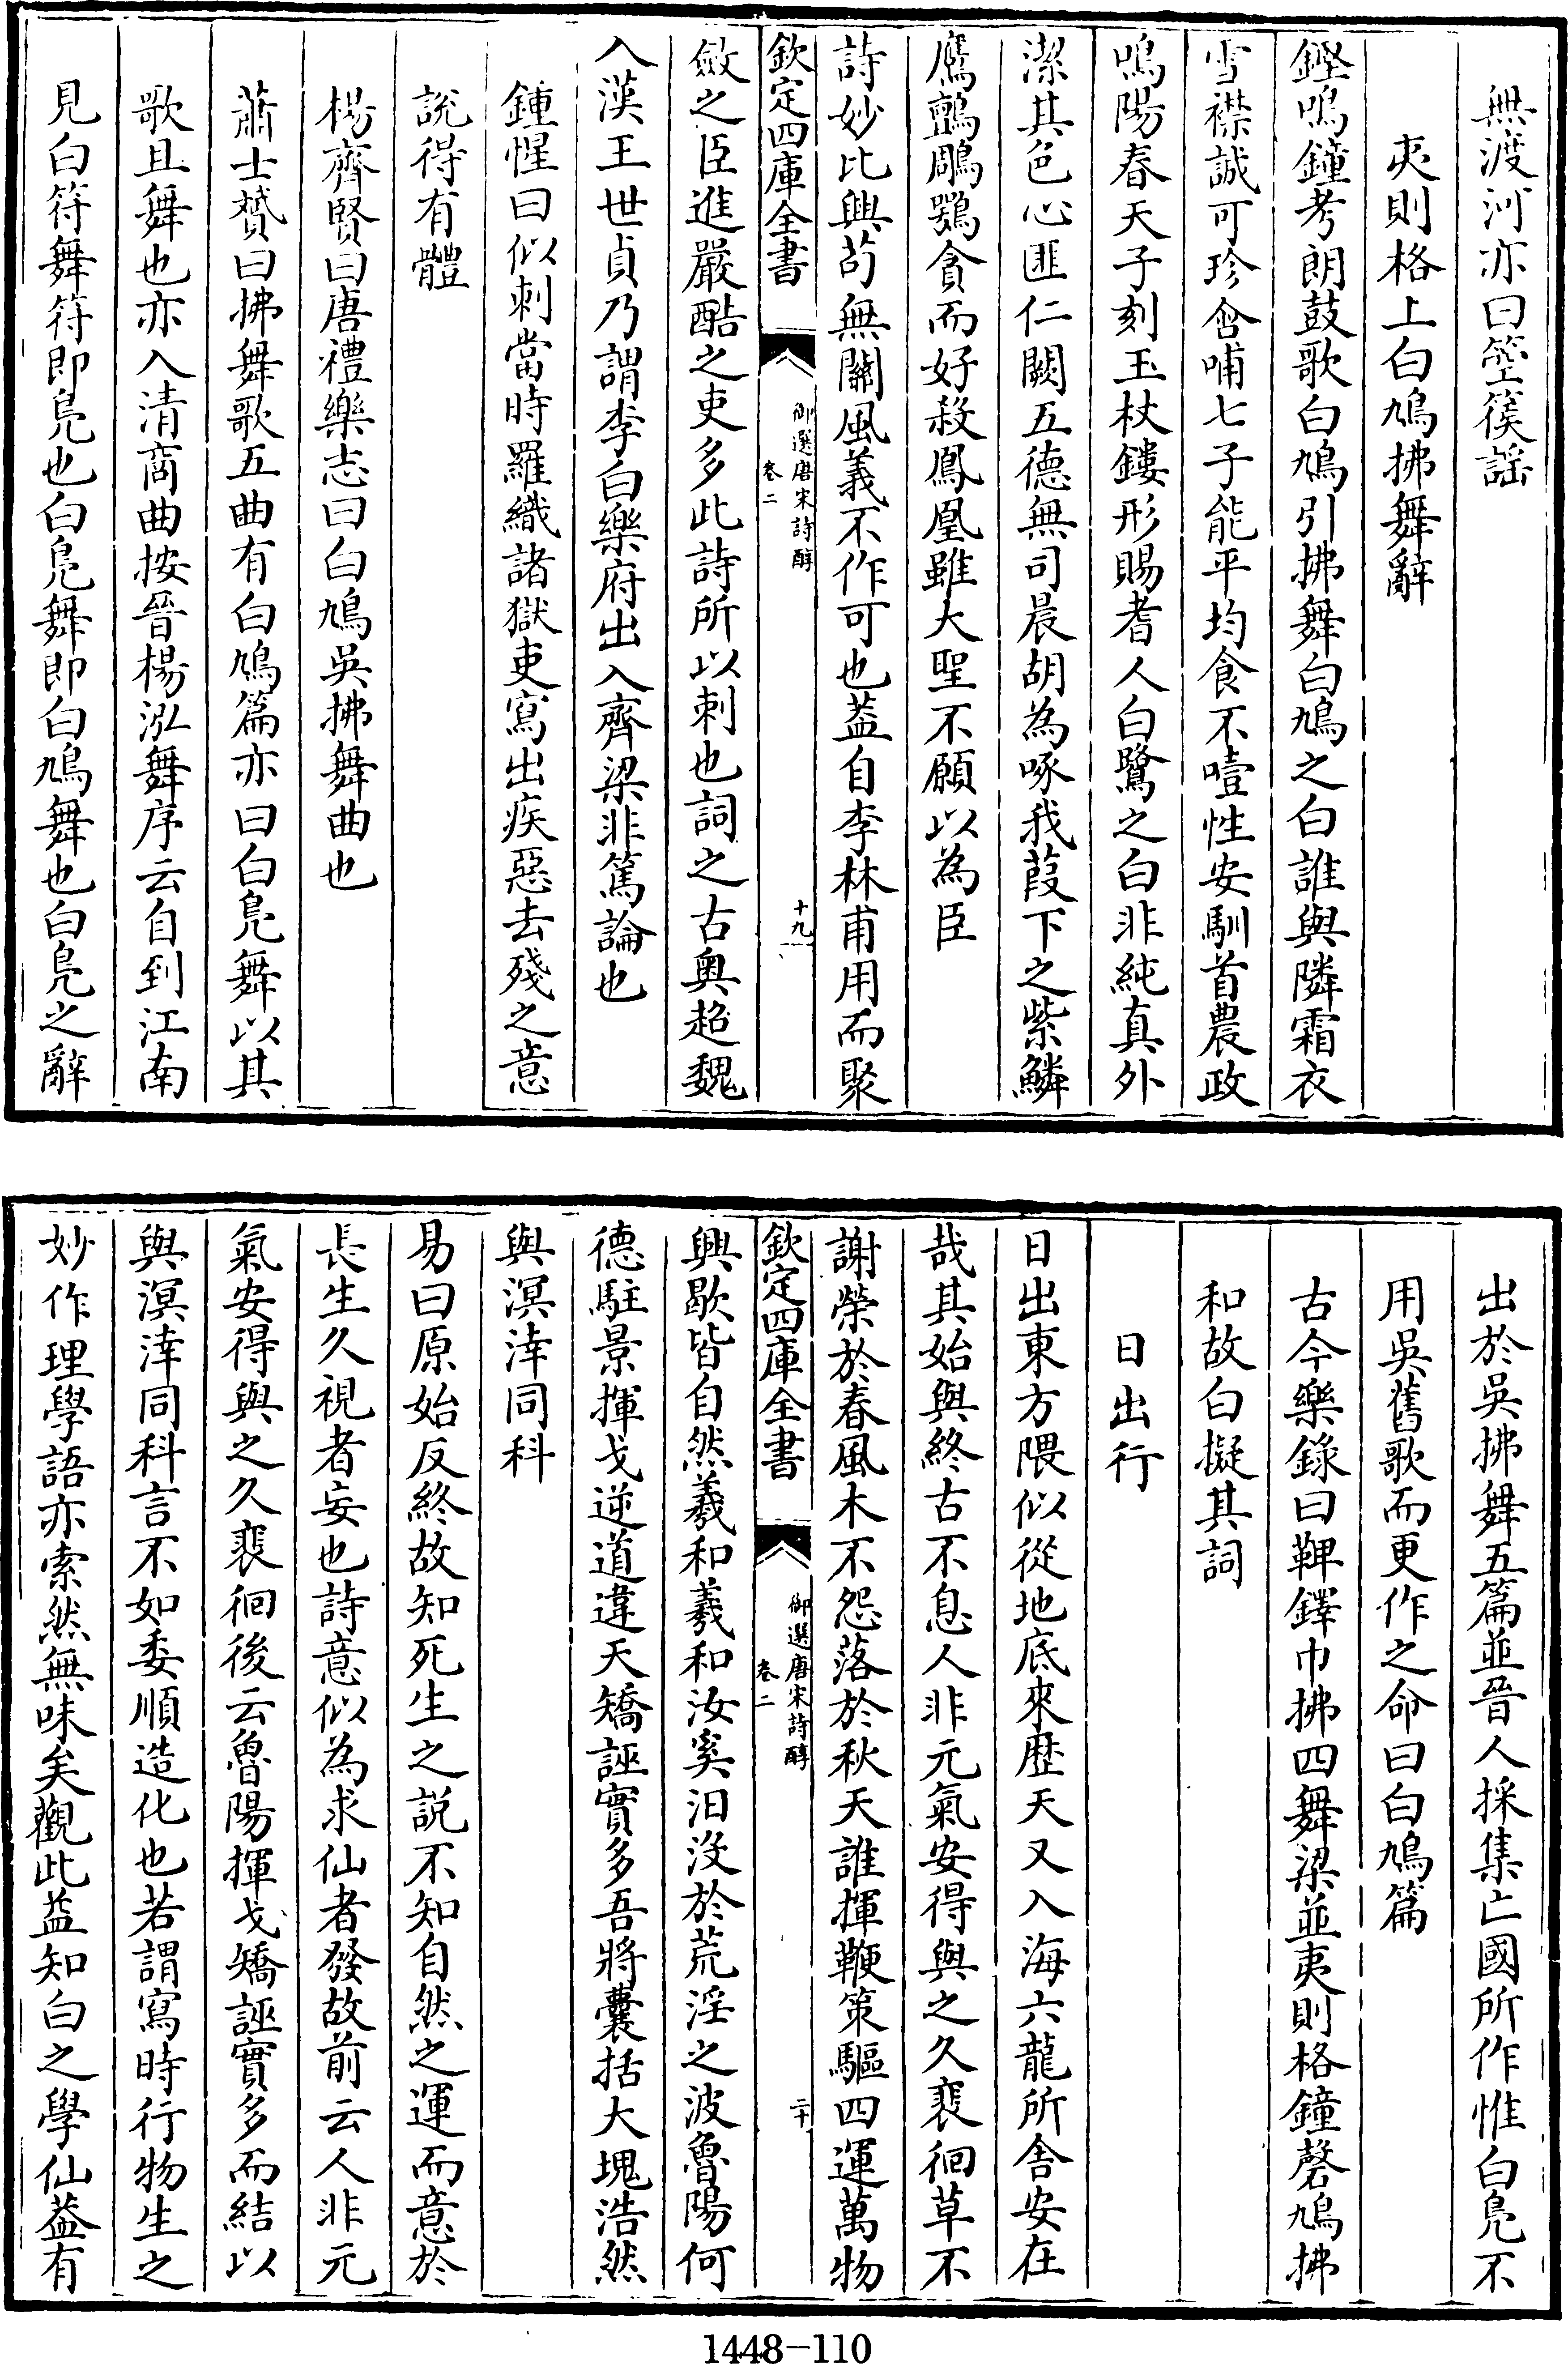 無渡河亦曰箜篌謡
夷則格上白鳩拂舞辭
鏗鳴鐘考朗鼓歌白鳩引拂舞白鳩之白誰與隣霜衣
雪襟誠可珍含哺七子能平均食不噎性安馴首農政
鳴陽春天子刻玉杖鏤形賜耆人白鷺之白非純真外
潔其色心匪仁闕五德無司晨胡為啄我葭下之紫鱗
鷹鸇鵰鶚貪而好殺鳳凰雖大聖不願以為臣
詩妙比興苟無關風義不作可也蓋自李林甫用而聚
欽定四庫全書
御選唐宋詩醇
卷二
十九
斂之臣進嚴酷之吏多此詩所以刺也詞之古奥超魏
入漢王世貞乃謂李白樂府出入齊梁非篤論也
鍾惺曰似刺當時羅織諸獄吏寫出疾惡去殘之意
說得有體
楊齊賢曰唐禮樂志曰白鳩吳拂舞曲也
蕭士贇曰拂舞歌五曲有白鳩篇亦曰白鳧舞以其
歌且舞也亦入清商曲按晉楊泓舞序云自到江南
見白符舞符即鳧也白鳧舞即白鳩舞也白鳧之辭
出於吳拂舞五篇並晉人採集亡國所作惟白鳧不
用吳舊歌而更作之命曰白鳩篇
古今樂錄曰鞞鐸巾拂四舞梁並夷則格鐘磬鳩拂
和故白擬其詞
日出行
日出東方隈似從地底來歷天又入海六龍所舍安在
哉其始與終古不息人非元氣安得與之久裴徊草不
謝榮於春風木不怨落於秋天誰揮鞭策驅四運萬物
欽定四庫全書
御選唐宋詩醇
卷二
二十
興歇皆自然羲和羲和汝奚汩没於荒淫之波魯陽何
德駐景揮戈逆道違天矯誣實多吾將囊括大塊浩然
與溟涬同科
易曰原始反終故知死生之説不知自然之運而意於
長生久視者妄也詩意似為求仙者發故前云人非元
氣安得與之久裴徊後云魯陽揮戈矯誣實多而結以
與溟涬同科言不如委順造化也若謂寫時行物生之
妙作理學語亦索然無味矣觀此益知白之學仙蓋有
1448-110